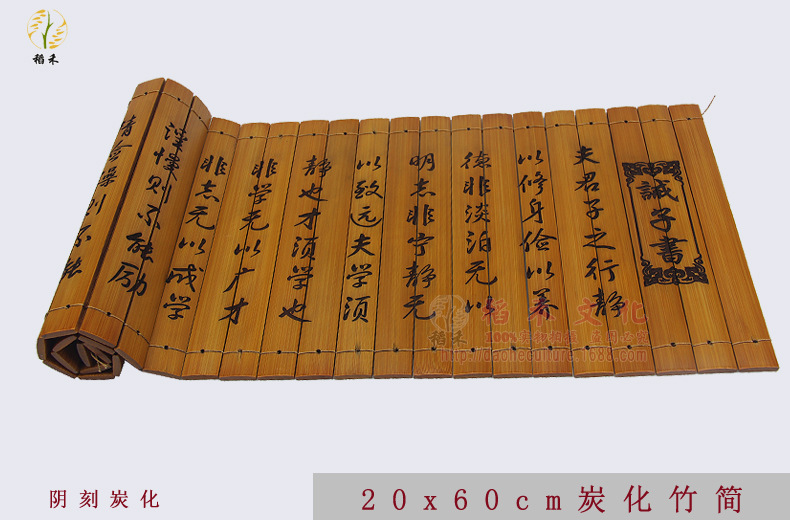 稻禾
誡子書
夫君子之行静
以修身俭以养
德非淡泊无以
明志非宁静无
以致远夫学须
静也才须学也
非学无以广才
非志无以成学
淫慢则不能励
稻禾文化
稻禾
http://daoheculture.1688.com
阴刻炭化
20x60cm炭化竹简